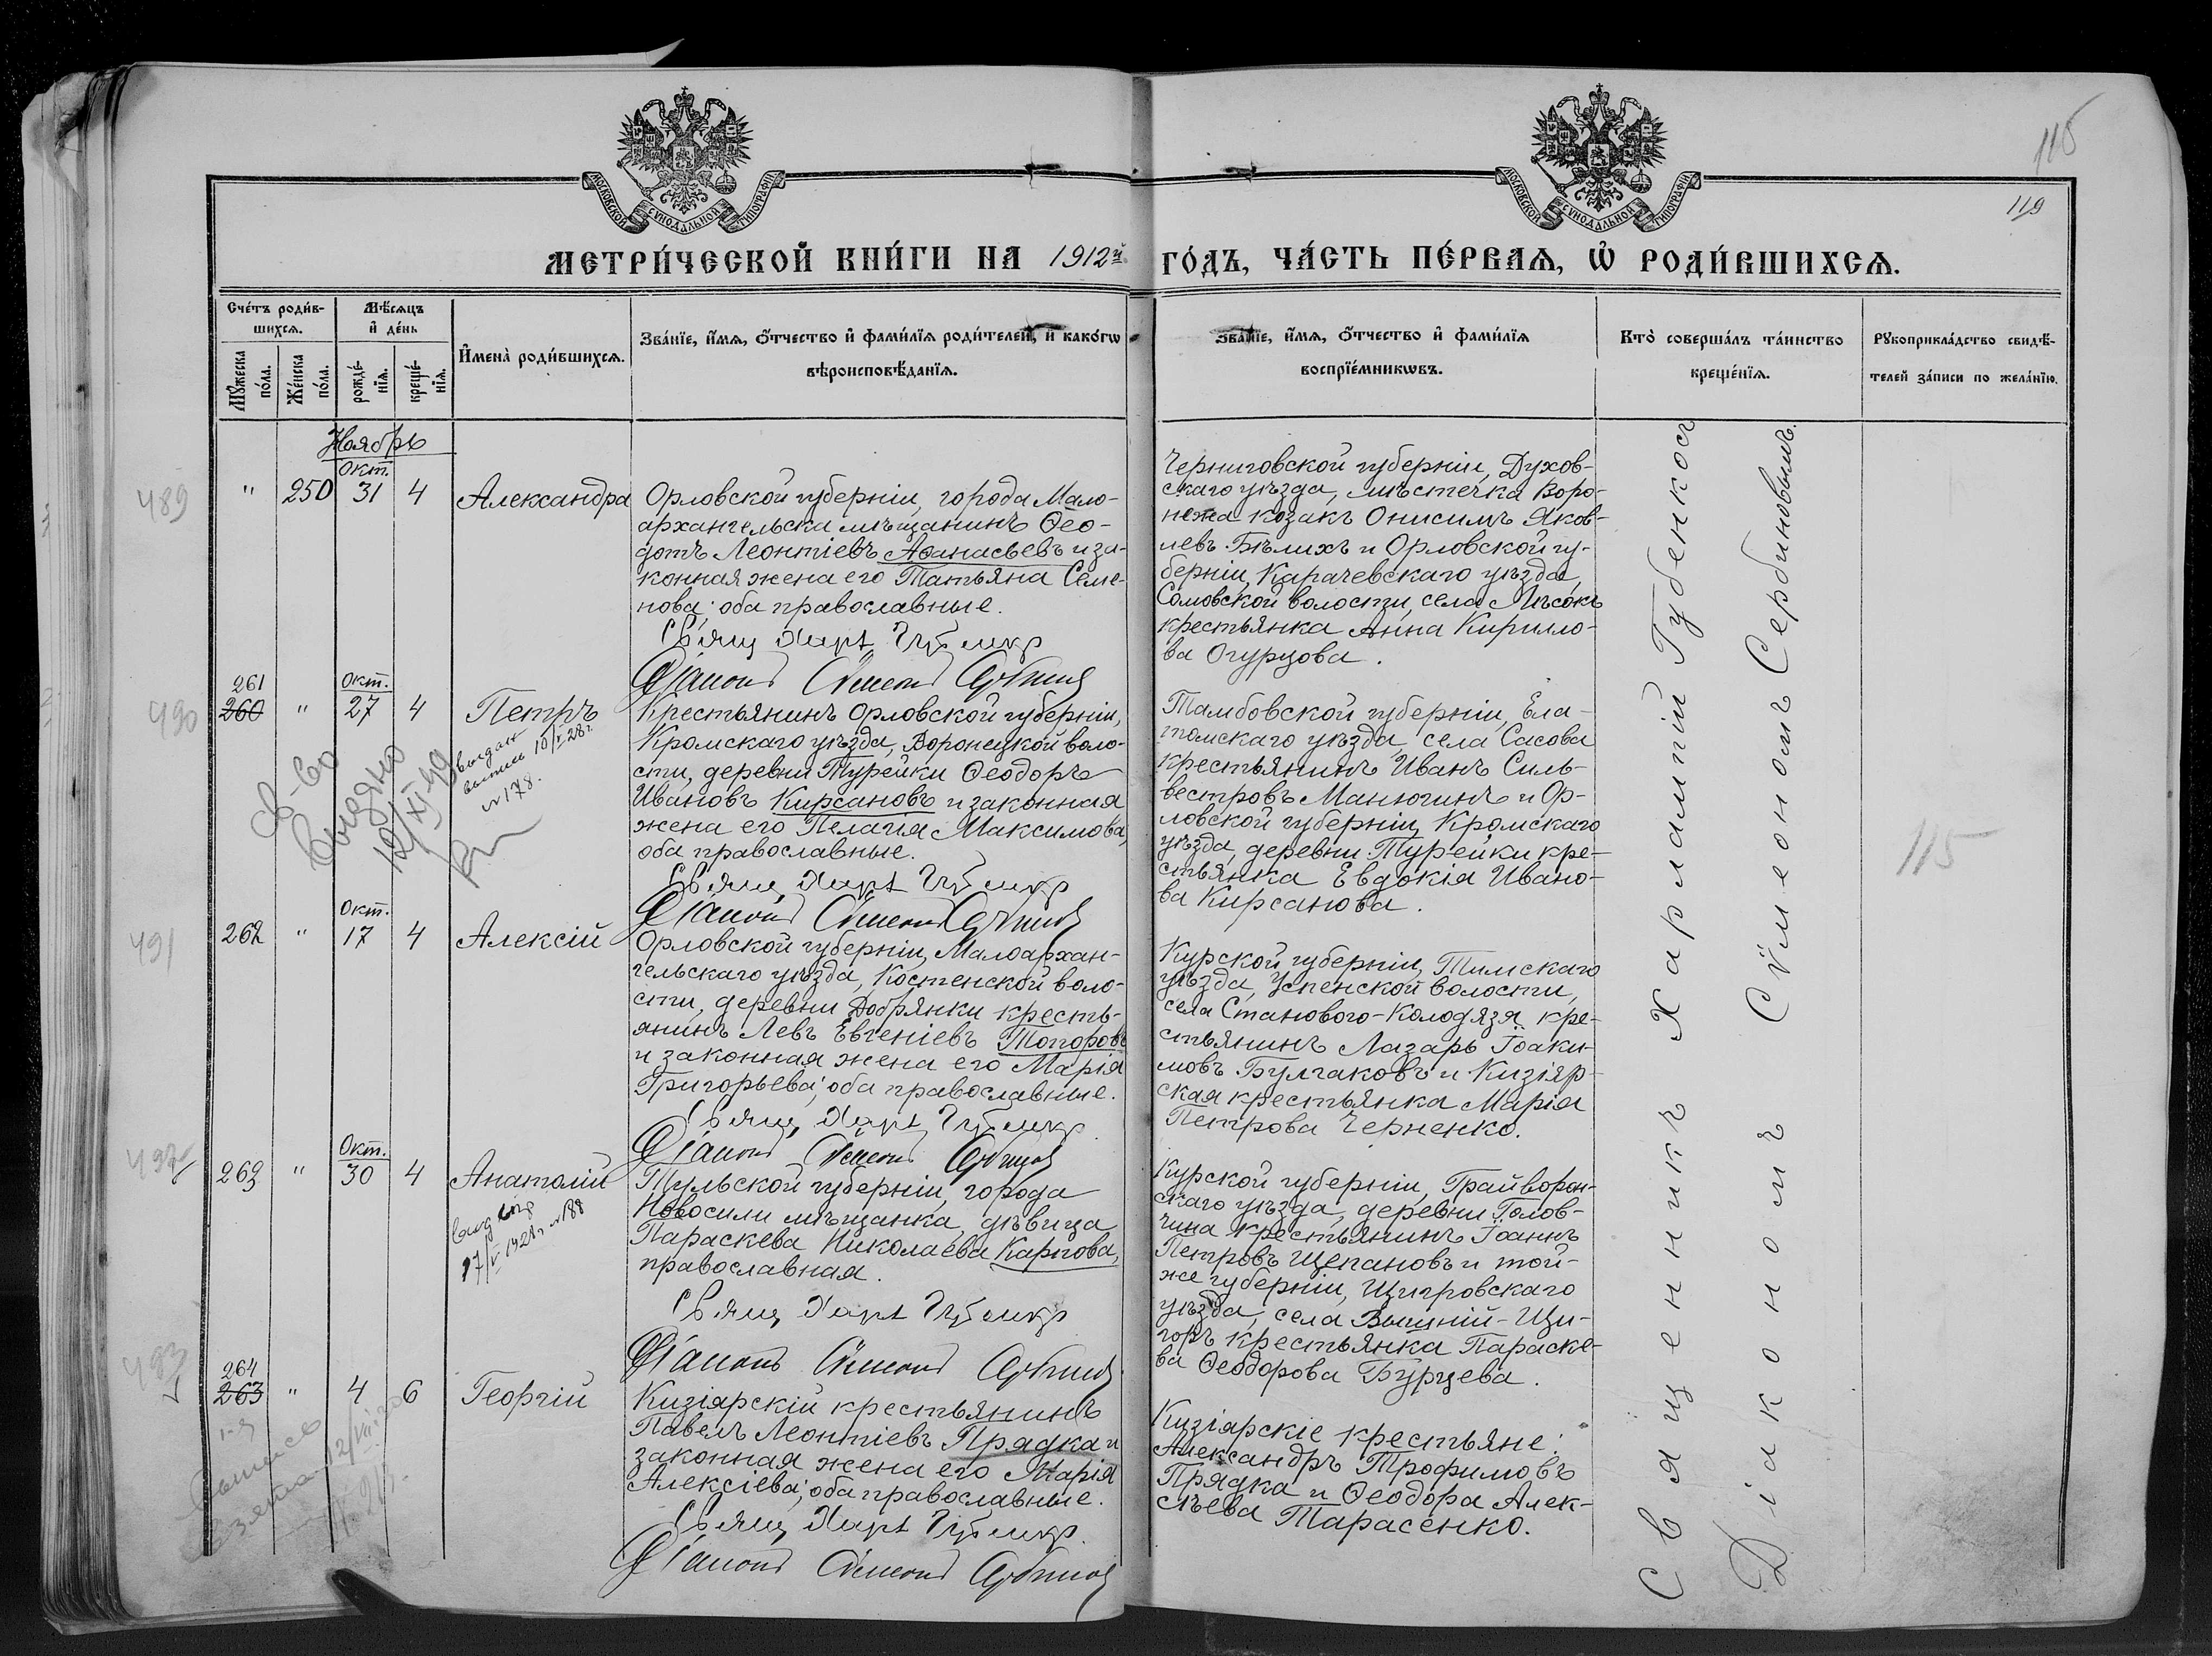 115
119
МОСКОВСКОЙ СѴНОДАЛЬНОЙ ТИПОГРАФІИ
МОСКОВСКОЙ СѴНОДАЛЬНОЙ ТИПОГРАФІИ
МЕТРИ́ЧЕСКОЙ КНИ́ГИ НА 1912й ГО́ДЪ, ЧА́СТЬ ПЕ́РВАѦ, Ѡ҆ РОДИ́ВШИХСѦ.
Сче́тъ роди́в-
шихсѧ.
Мꙋ́жеска по́ла.
Же́нска по́ла.
Мѣ́сѧцъ
и҆ де́нь
рожде́-
нїѧ.
креще́-
нїѧ.
И҆мена̀ роди́вшихсѧ.
Зва́нїе, и҆́мѧ, ѻ҆́тчество и҆ фами́лїѧ роди́телей, и҆ како́гѡ
вѣроисповѣ́данїѧ.
Зва́нїе, и҆́мѧ, ѻ҆́тчество и҆ фами́лїѧ
воспрїе́мникѡвъ.
Кто̀ соверша́лъ та́инство
креще́нїѧ.
Рꙋкоприкла́дство свидѣ́-
телей за́писи по жела́нїю.
Ноябрь
489
"
250
Окт.
31
4
Александра
Орловской губерніи, города Мало-
архангельска мѣщанинъ Ѳео-
дотъ Леонтіевъ Аѳанасьевъ и за-
конная жена его Татьяна Семе-
нова; оба православные.
Свящ. Харл. Губенко
Діаконъ Сѵмеонъ Сербиновъ
Черниговской губерніи, Духов-
скаго уѣзда, мѣстечка Воро-
нежа козакъ Онисимъ Яков-
левъ Бѣлихъ и Орловской гу-
берніи, Карачевскаго уѣзда,
Сомовской волости, села Лѣсокъ
крестьянка Анна Кирилло-
ва Огурцова.
490
261
260
"
Окт.
27
4
Петръ
св-во
выдано
19/XI-49
выдан
выпись 10/V 28г.
№178.
Крестьянинъ Орловской губерніи,
Кромскаго уѣзда, Воронецкой воло-
сти, деревни Турейки Ѳеодоръ
Ивановъ Кирсановъ и законная
жена его Пелагія Максимова,
оба православные.
Свящ. Харл. Губенко
Діаконъ Сѵмеонъ Сербиновъ
Тамбовской губерніи, Ела-
томскаго уѣзда, села Сасова
крестьянинъ Иванъ Силь-
вестровъ Манюгинъ и Ор-
ловской губерніи, Кромскаго
уѣзда, деревни Турейки кре-
стьянка Евдокія Ивано-
ва Кирсанова.
115
491
262
"
Окт.
17
4
Алексій
Орловской губерніи, Малоархан-
гельскаго уѣзда, Костенской воло-
сти, деревни Добрянки кресть-
янинъ Левъ Евгеніевъ Топоровъ
и законная жена его Марія
Григорьева; оба православные.
Свящ. Харл. Губенко
Діаконъ Сѵмеонъ Сербиновъ
Курской губерніи, Тимскаго
уѣзда, Успенской волости,
села Станового-Колодязя кре-
стьянинъ Лазарь Іоаки-
мовъ Булгаковъ и Кизіяр-
ская крестьянка Марія
Петрова Черненко.
492
263
"
Окт.
30
4
Анатолій
17/V 1928г. №188
Тульской губерніи, города
Новосили мѣщанка, дѣвица
Параскева Николаева Карпова,
православная.
Свящ. Харл. Губенко
Діаконъ Сѵмеонъ Сербиновъ
Курской губерніи, Грайворон-
скаго уѣзда, деревни Голов-
чина крестьянинъ Іоаннъ
Петровъ Щепановъ и той-
же губерніи, Щигровскаго
уѣзда, села Вышній-Щи-
горъ крестьянка Параске-
ва Ѳеодорова Бурцева.
493
264
263
"
4
6
Георгій
1-я
выпись
взята 12/VII
Кизіярскій крестьянинъ
Павелъ Леонтіевъ Прядка и
законная жена его Марія
Алексіева; оба православные.
Свящ. Харл. Губенко
Діаконъ Сѵмеонъ Сербиновъ
Кизіярскіе крестьяне:
Александръ Трофимовъ
Прядка и Ѳеодора Алек-
сѣева Тарасенко.
Священникъ Харлампій Губенко съ
Діакономъ Сѵмеономъ Сербиновымъ.